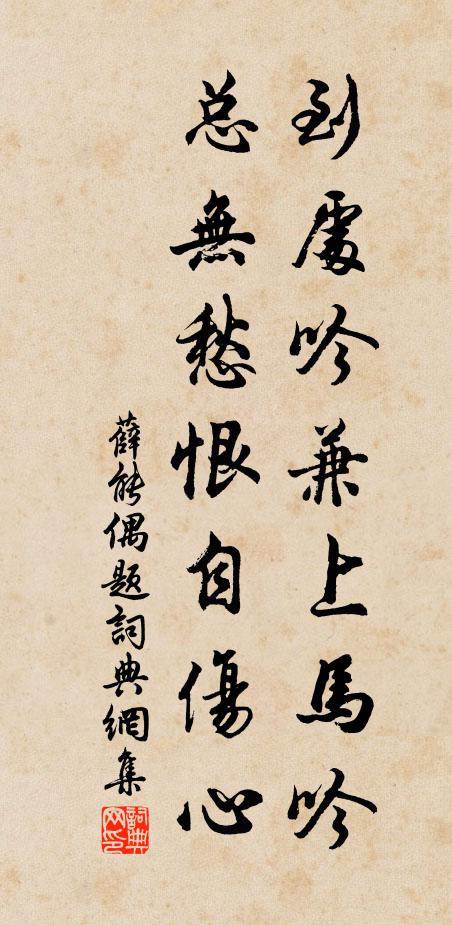 到處吟兼上馬吟
总無愁恨自傷心
薛能偶题詞典網集
詞典網印